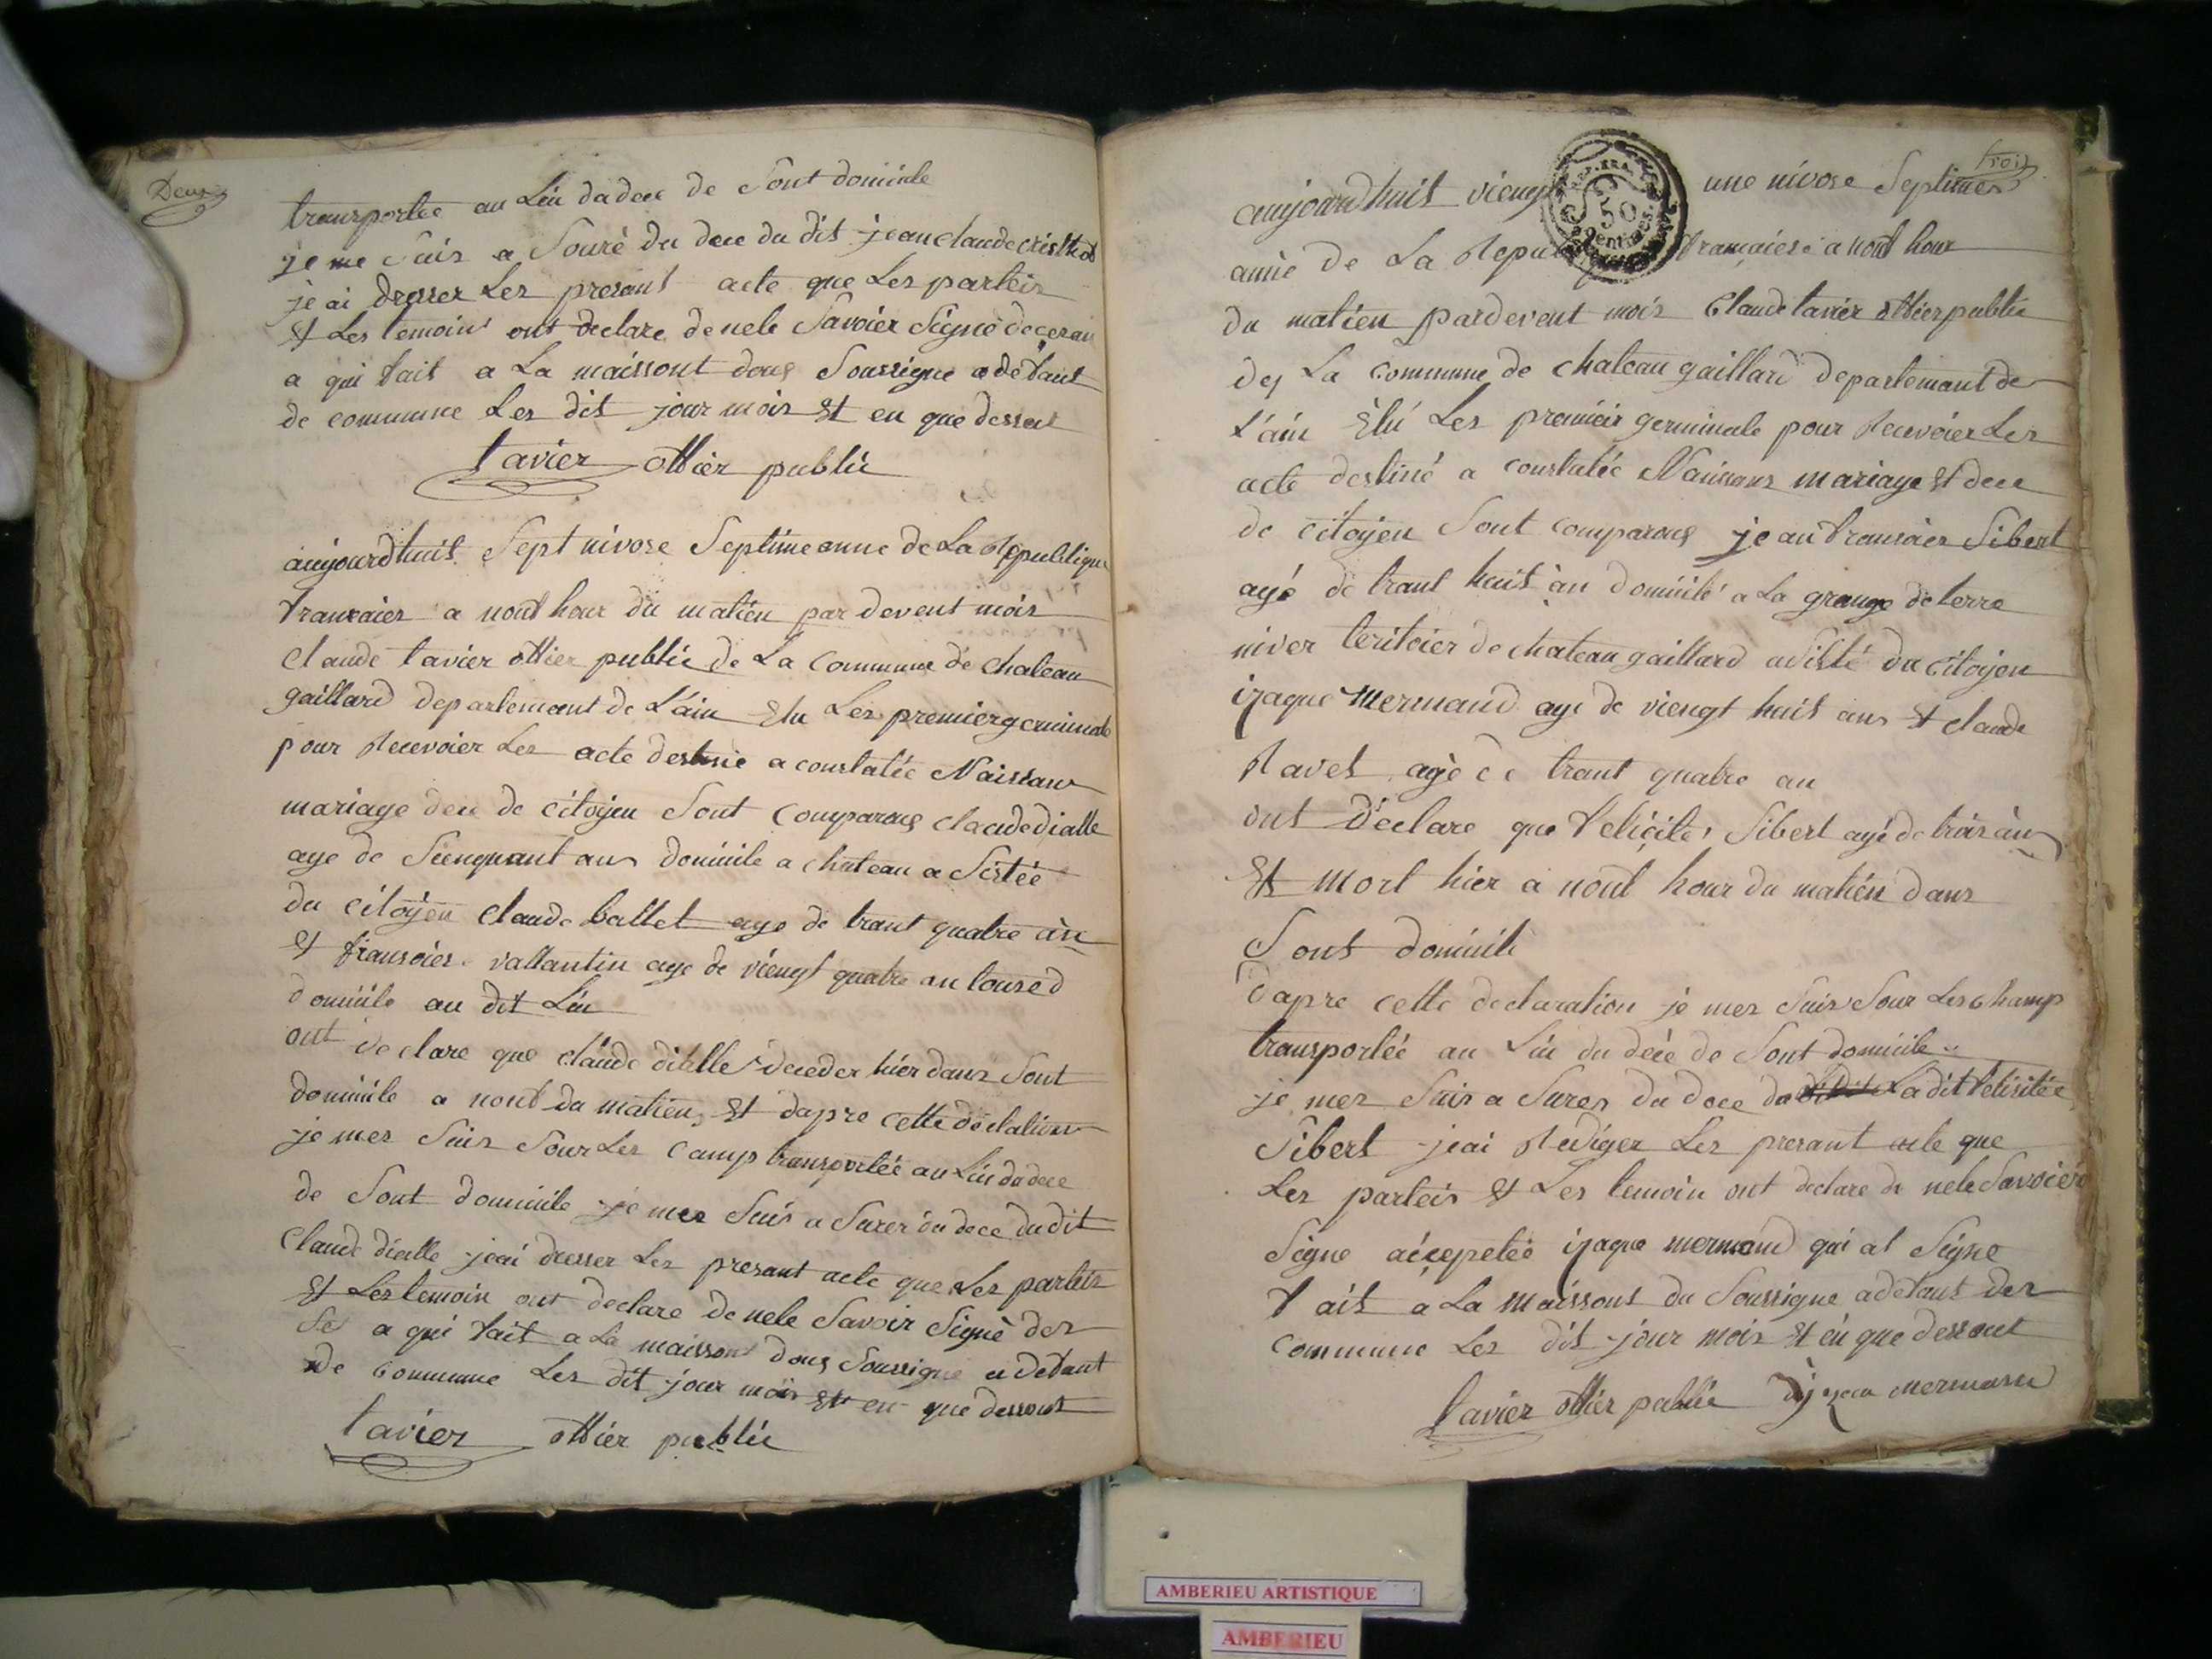 Deux
transportee au Liu da dece de Sont domicile
je me Suis a Souré du dece du dit jean claude
je ai dresser Les presant acte que Les parteis
Et Les temoins ont declare de nele Savoier Signé
a qui fait a La maissont dous Soussigne a defaut
de commune Les dit jour mois Et en que dessut
tavier offier publie
aujourdhuit Sept nivose Septime anne de La Republique
franxaies a nout hour du matien par devent mois
Claude tavier offier publie de La commune de chateau
gaillard departemant de L'ain Elu Les premier germinale
pour Recevoier Les acte destine a constatée Naissans
mariage dece de citoyen Sont comparous claude dialle
age de Sienquant ans domicile a chateau a Sistée
du citoyen Claude ballet age de trant quatre àn
Et fransoies vallantin age de viengt quatre an
domicile au dit Liu
ont declare que claude dialle deceder hier dans Sont
domicile a nout du matien Et dapre cette
je mes Suis Sour Les camp transportée au Liu da dece
de Sont domicile je mes Suis a Surer du dece du dit
Claude dialle jeai dresser Les presant acte que Les parteis
Et Les temoin ont declare de nele Savoir Signè des
Se a qui fait a La maissont dous Soussigne a defaut
de commune Les dit jour mois Et en que dessous
tavier offier publie
trois
aujourdhuit viengt une nivose Septimes
REP. FRA. 50 centimes
anné de La Repu françaiese a nout hour
du matien pardevent mois Claude tavier offier publie
des La commune de chateau gaillard departemant de
L'ain Elu Les premieir germinale pour Recevoier Les
acte destiné a constatée Naissans mariage Et dece
de citoyen Sont comparous jean fransoies Sibert
agé de trant huit àn domicilé a La grange de terre
niver teritoier de chateau gaillard adisté du citoyen
izaque Mermand age de viengt huit ans Et claude
Ravet agè de trant quatre an
ont déclare que felicite Sibert agé de trois àns
Et mort hier a nout hour du matien dans
Sont domicile
Dapre cette declaration je mes Suis Sour Les champ
transportée au Liu du decè de Sont domicile
je mes Suis a Surer du dece du La dit felisitée
Sibert jeai Rediger Les presant acte que
Les parteis Et Les temoin ont declare de nele Savoier
Signe acceptée izaque mermand qui at Signe
fait a La maissont du Soussigne a defaut des
commune Les dit jour mois Et en que dessout
tavier offier publie mermand
AMBERIEU ARTISTIQUE
AMBERIEU